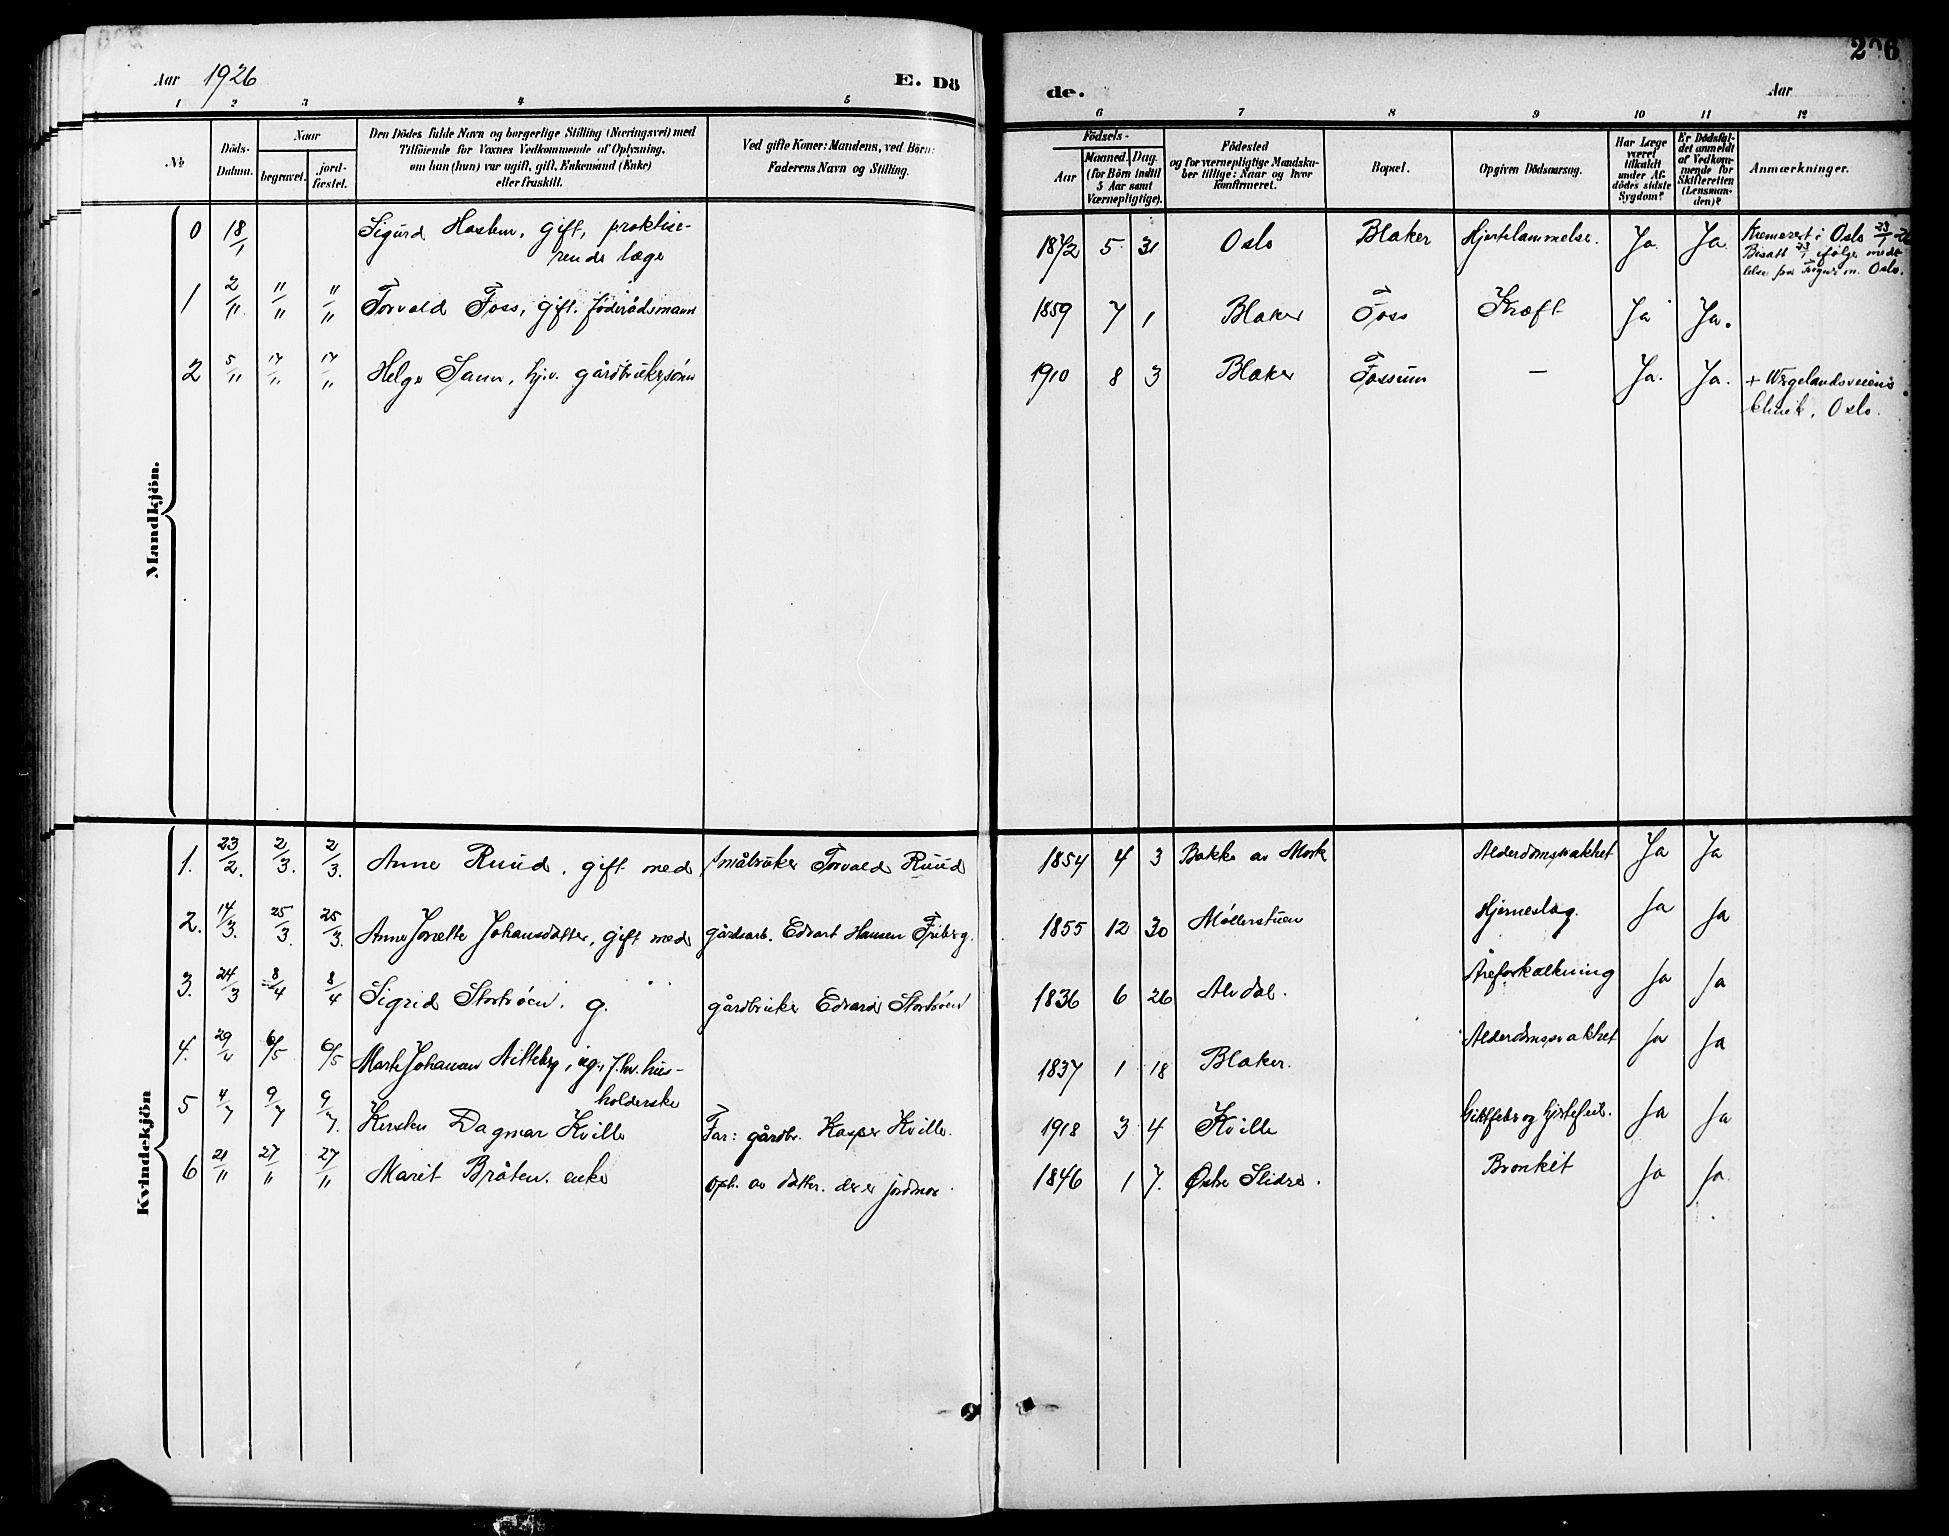 Aar 1926 E. Dö
de. Aar
206
1 2 3 4 5 6 7 8 9 10 11 12
No
Döds-
Datum.
Naar
begravet.
jord-
fæstet.
Den Dödes fulde Navn og borgerlige Stilling (Næringsvei) med
Tilföiende for Voxnes Vedkommende af Oplysning,
om han (hun) var ugift, gift, Enkemand (Enke)
eller fraskilt.
Ved gifte Koner: Mandens, ved Börn:
Faderens Navn og Stilling.
Födsels-
Aar
Maaned. Dag.
(for Börn indtil
5 Aar samt
Værnepligtige).
Födested
og for værnepligtige Mandsku-
ber tillige: Naar og hvor
konfirmeret.
Bopæl.
Opgiven Dödsaarsag.
Har Læge
været
tilkaldt
under Af-
dödes sidste
Sygdom?
Er Dödsfal-
det anmeldt
af Vedkom-
mende for
Skifteretten
(Lensman-
den)?
Anmærkninger.
Mandkjön.
0 18/1 Sigurd Haslem, gift, praktise-
rende læge
1872 5 31 Oslo Blaker Hjertelammelse. Ja. Ja.
Kremeret i Oslo 23/1-26
Bisatt 23/1 ifølge medde-
lelse fra m. Oslo.
1 2/11 " " " " Torvald Foss, gift. föderådsmann 1859 7 1 Blaker Foss Kræft Ja Ja.
2 5/" 17/" 17/" Helge Saun, hjv. gårdbrukersönn 1910 8 3 Blaker Fossum — Ja. Ja. + Wergelandsveiens
klinik, Oslo.
Kvindekjön
1. 23/2. 2/3. 2/3. Anne Ruud, gift med småbruker Torvald Ruud 1854 4 3 Bakke av Mork Alderdomssvakhet Ja Ja
2. 14/3. 25/3. 25/3. Anne Josette Johansdatter, gift med gårdsarb. Edvart Hansen Friberg. 1855 12 30 Møllerstuen Hjerneslag. Ja Ja
3. 24/3 8/4 8/4 Sigrid Stortröen. g. " " gårdbruker Edvard Stortröen 1836 6 26 Alvdal. Åreforkalkning Ja Ja
4. 29/4 6/5 6/5 Marte Johanne ug., f.hv. hus-
holderske
1837 1 18 Blaker. Alderdomssvakhet Ja Ja
5 4/7 9/7 9/7. Kersten Dagmar Kville Far: gårdbr. Kasper Kville. 1918 3 4 Kville Giktfeber og hjertefeil. Ja Ja
6 21/" 27/" 27/" Marit Bråten. enke Oph. av datter. der er jordmor. 1846 1 7. Østre Slidre. Bronkit Ja Ja.